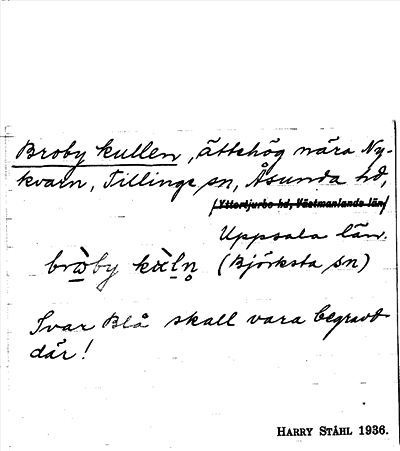 Broby kullen, ättehög nära Ny-
kvarn, Tillinge sn, Åsunda hd,
/Yttertjurbo hd, Västmanlands län/
Uppsala län.
(Björksta sn)
Ivar Blå skall vara begravd
där!
HARRY STÅHL 1936.